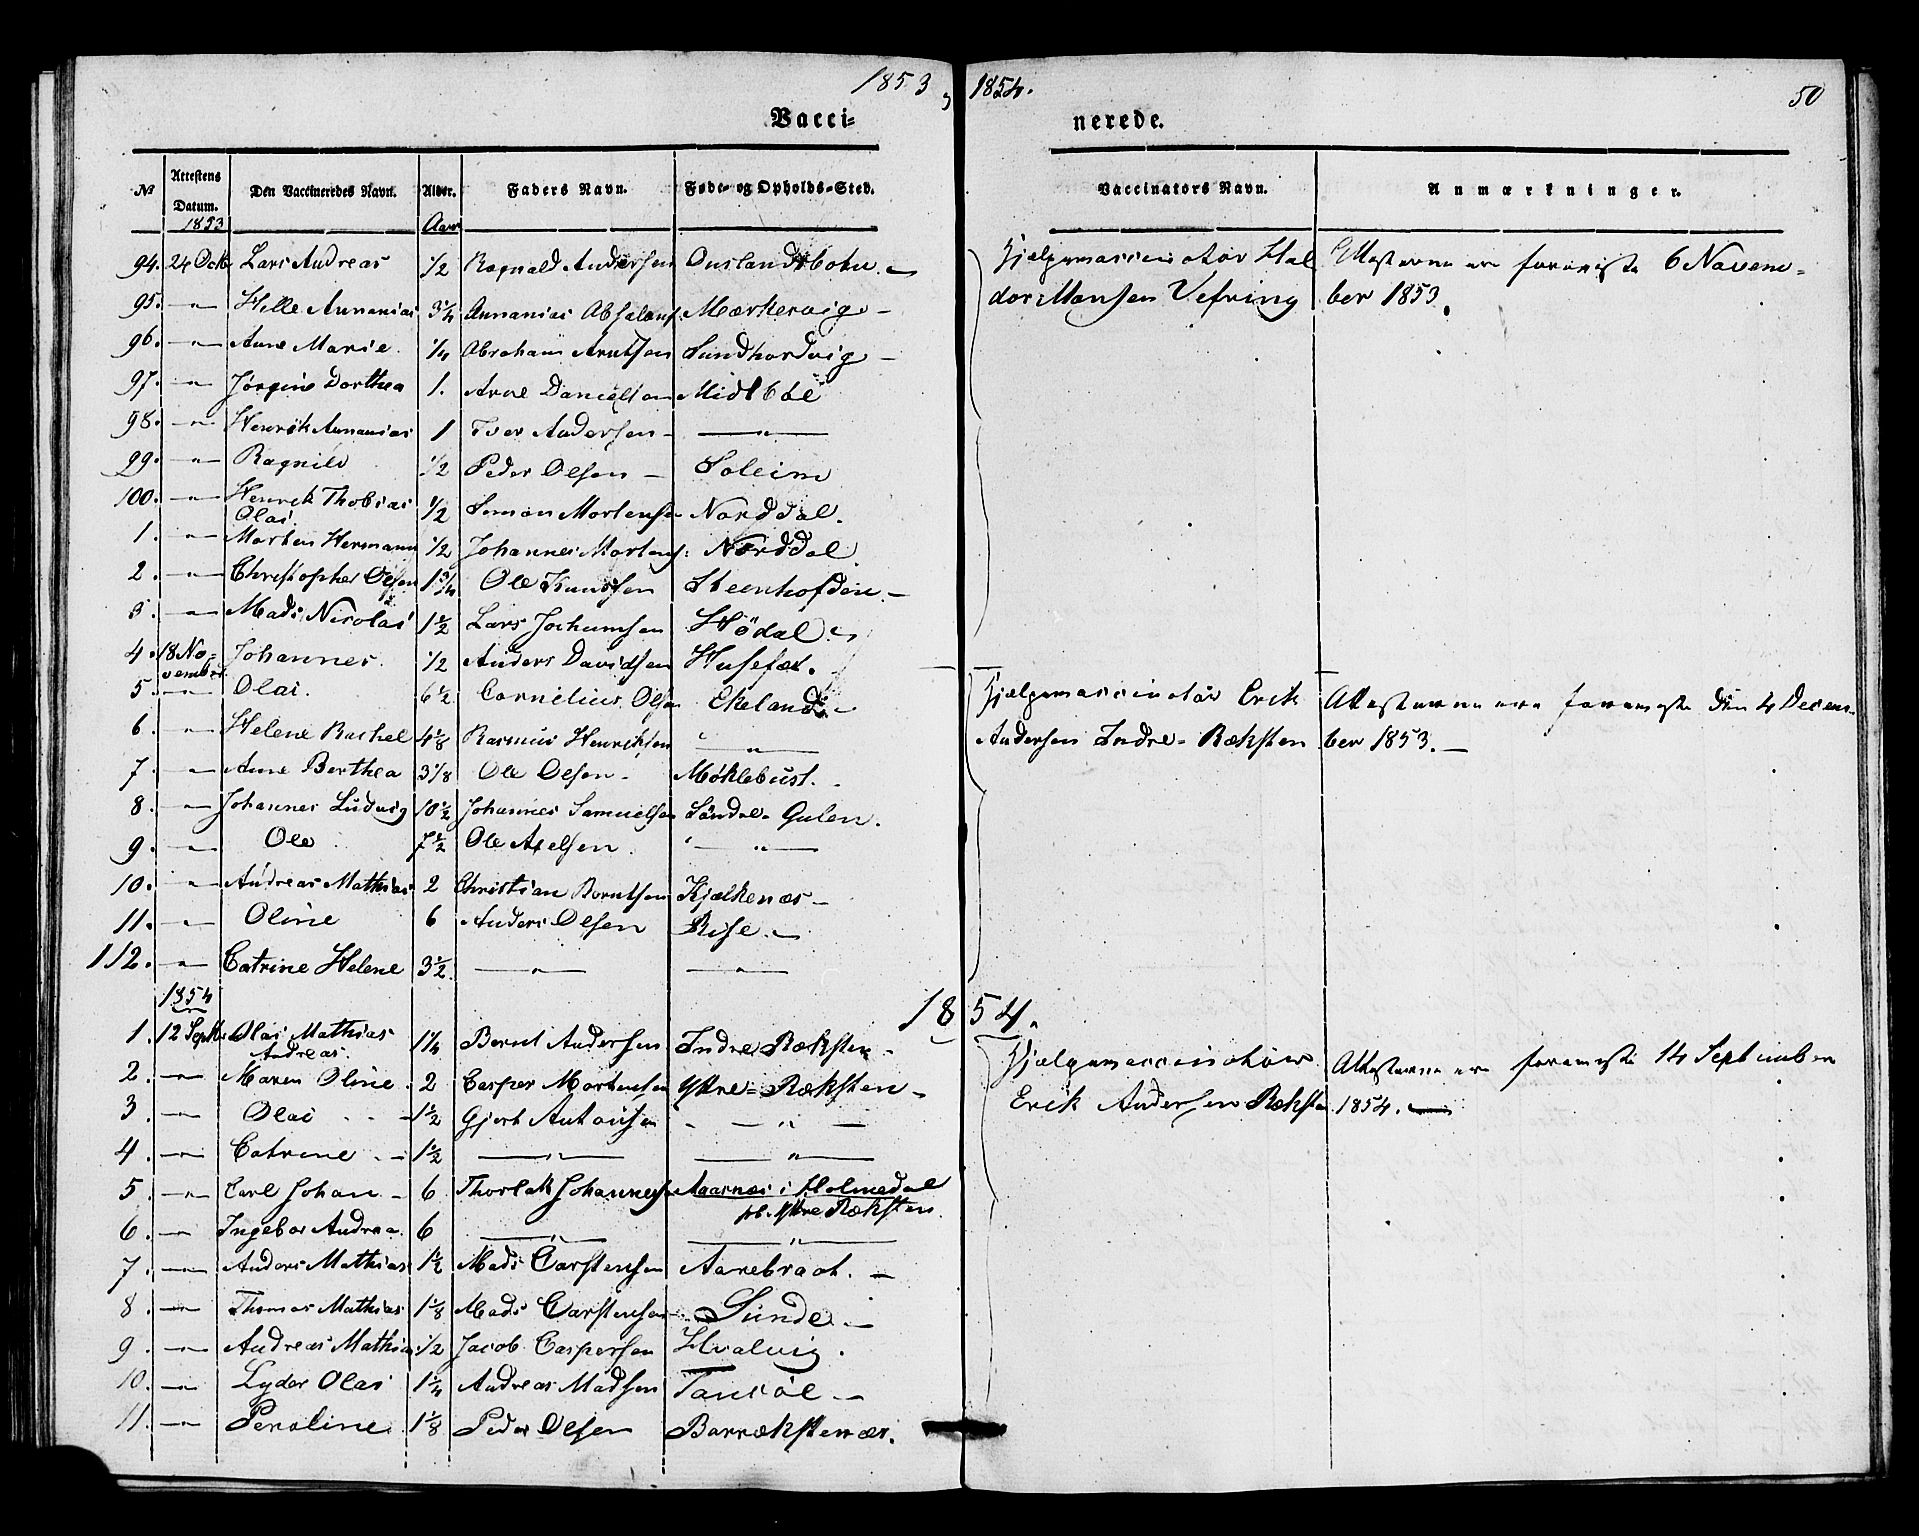 1853, 1854.
50
Vacci- nerede.
№ Attestens Datum. Den Vaccineredes Navn. Alder. Faders Navn. Føde- og Opholds-Sted. Vaccinators Navn. Anmærkninger.
1853 Aar
94. 24 Octb Lars Andreas 1/2 Ragnald Andersen Ouslandsbotn. Hjelpevaccinatør Hal Attesterne ere foreviste 6 Novem-
95. -"- Hille Annanias 3/4 Annanias Absalons: Mørkevig - dor Monsen Vefring ber 1853.
96. -"- Anne Marie 1/4 Abraham Arntsen Sundhordvig -
97. -"- Jørgine Dorthea 1. Arne Danielsen Midtbøe
98. -"- Henrik Annanias 1 Iver Andersen - -"-
99. -"- Ragnild 1/2 Peder Olsen - Soleim
100. -"- Henrik Thobias 1/2 Simon Mortensen Norddal.
Olai.
1. -"- Morten Hermann 1/2 Johannes Mortens: Norddal
2. -"- Christopher Olsen 1 3/4 Ole Knudsen Steenhofden. -
3. -"- Mads Nicolai 1 1/2 Lars Jochumsen Hödal.
4. 18 No- Johannes. 1/2 Anders Davidsen Husefæt.
vember
5. -"- Olai. 6 1/2 Cornelius Olsen Ekeland Hjelpevaccinatør Erik Attesterne ere foreviste den 4 Decem-
6. -"- Helene Rachel 4 1/8 Rasmus Henriksen -"- Andersen Indre-Ræksten ber 1853. -
7. -"- Anne Berthea 3 1/8 Ole Olsen - Møklebust. -
8. -"- Johannes Ludvig 10 1/2 Johannes Samuelsen Söndre Gulen.
9. -"- Ole 7 1/2 Ole Axelsen. -"-
10. -"- Andreas Mathias 2 Christian Berntsen Kjelkenæs -
11. -"- Oline 6 Anders Olsen Rise. -
112. -"- Catrine Helene 3 1/2. -"- -"-
1854
1854.
1. 12 Septb: Olai Mathias 1 1/4 Bernt Andersen Indre Ræksten - Hjelpevaccinatør Attesterne ere foreviste 14 September
Andreas.
2. -"- Maren Oline. 2 Casper Mortensen Yttre-Ræksten - Erik Andersen Ræksten 1854. -
3. -"- Olai - - 1 1/2 Gjert Antonisen - -"-
4. -"- Catrine - - 1 1/2 -"- -"-
5. -"- Carl Johan - 6 Thorlak Johannesen Aarnæs i Holmedal
Yttre Ræksten.
6. -"- Ingebor Andrea. 6 -"- -"-
7. -"- Anders Mathias 1 1/2 Mads Carstensen Aarebraat. -
8. -"- Thomas Mathias 1 1/8 Mads Carstensen Sunde. -
9. -"- Andreas Mathias 1/2 Jacob Caspersen Hvalvig.
10. -"- Lyder Olai 1 1/4 Andreas Madsen Tansöe -
11. -"- Peroline 1 1/8 Peder Olsen Barrækstenær.